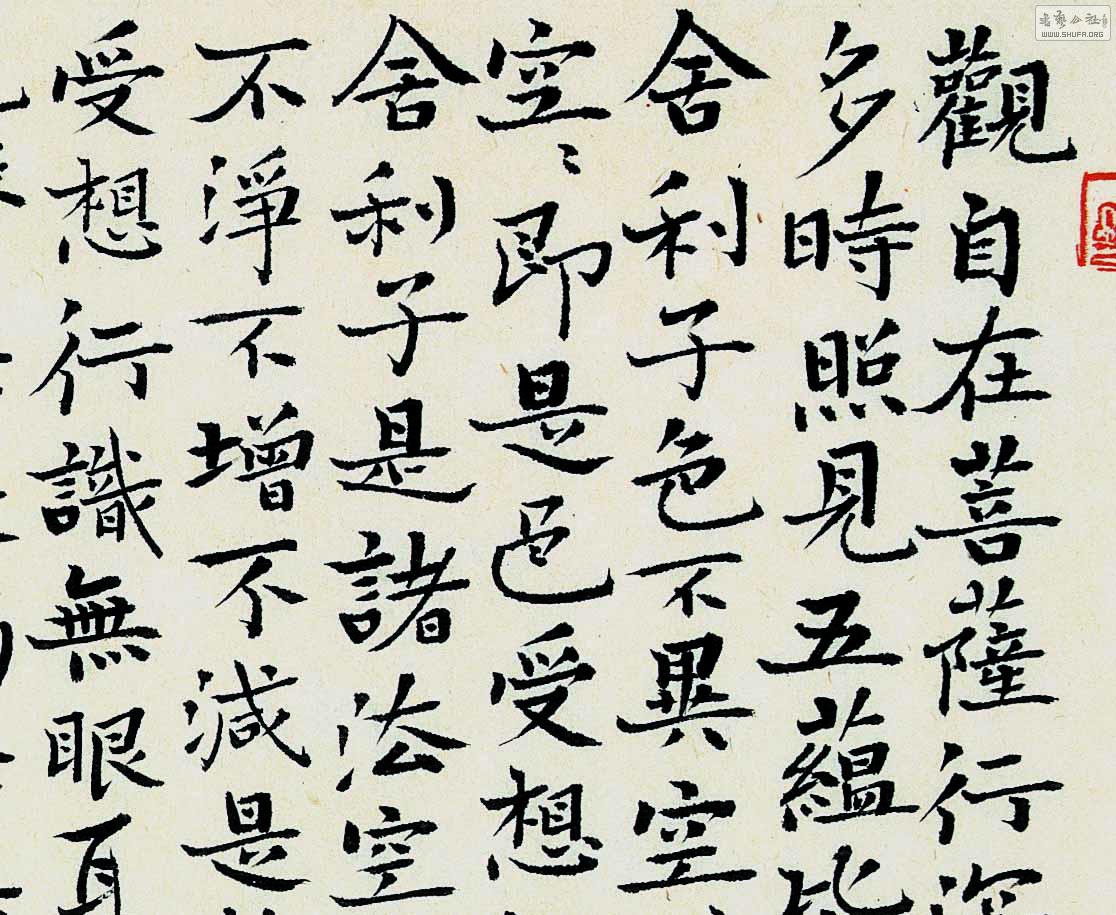 觀自在菩薩行深
多時照見五蘊皆
舍利子色不異空
空〻即是色受想
舍利子是諸法空
不淨不增不減是
受想行識無眼耳
WWW.SHUFA.ORG